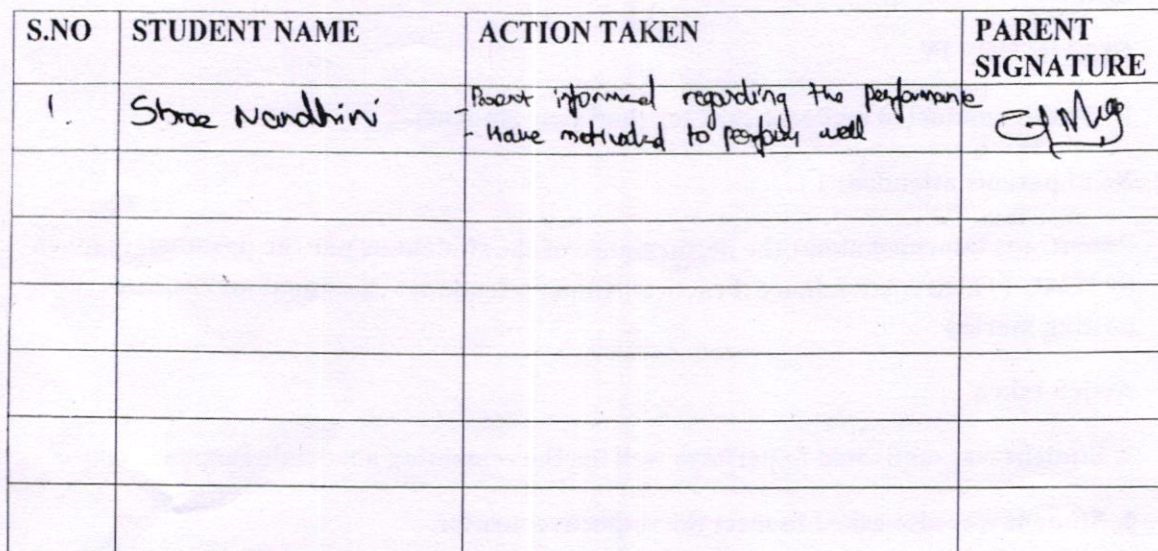 S.NO STUDENT NAME ACTION TAKEN PARENT SIGNATURE
1. Shree Nandhini Parent informed regarding the performance
- Have motivated to perform well